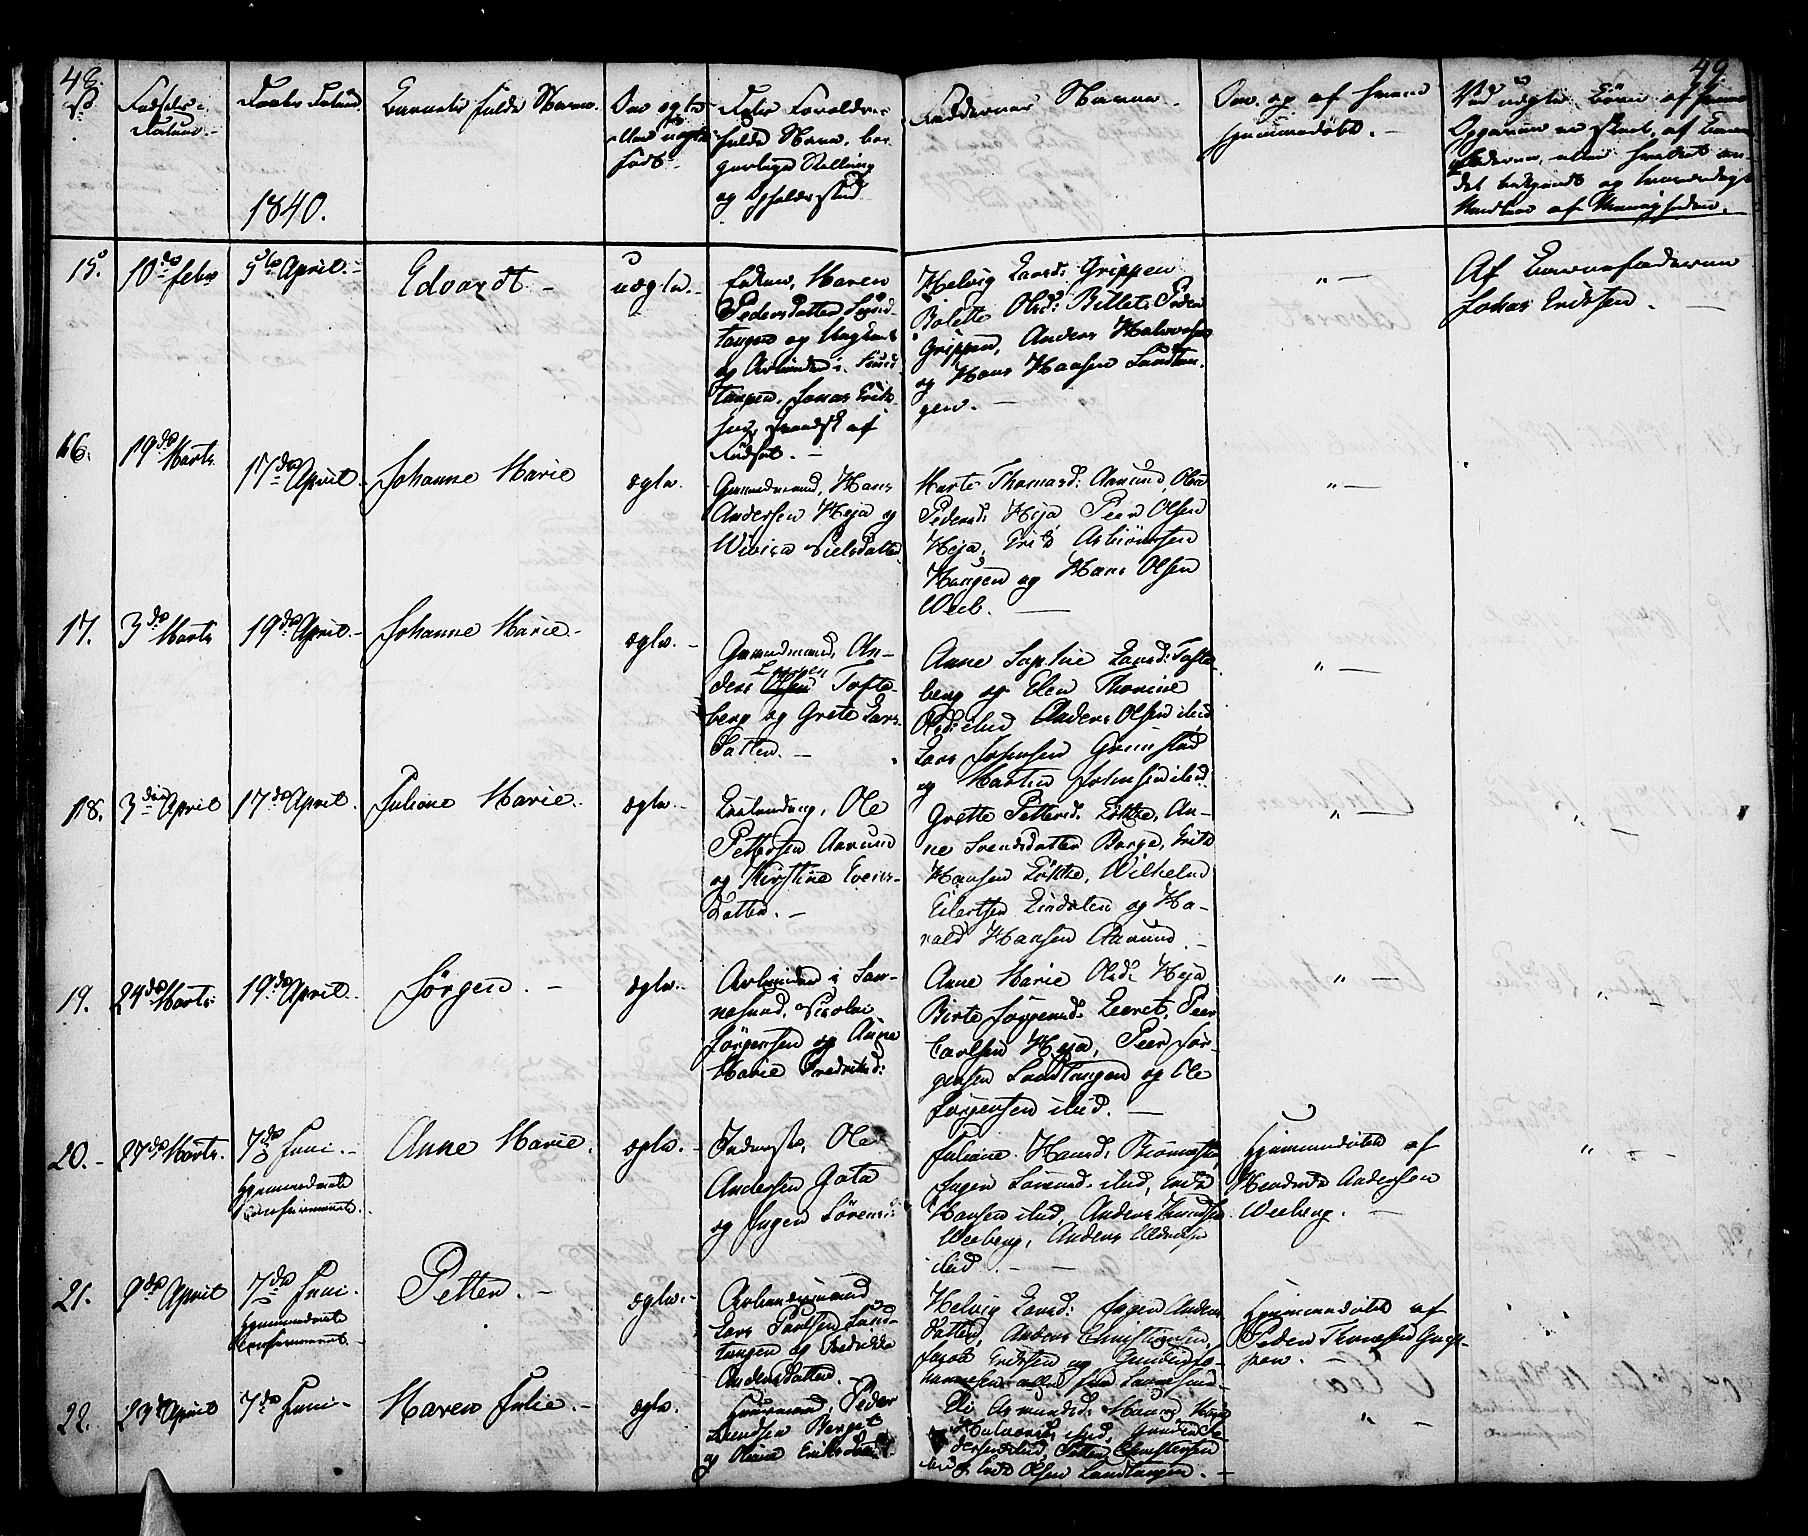 48.
49.
No
Fødsels-
Datum.
Daabs Datum
1840.
Barnets fulde Navn.
Om ægte
eller uægte
født.
Dets Forældres
fulde Navn, bor-
gerlige Stilling
og Opholdssted
Faddernes Navne.
Om og af hvem
hjemmedøbt.
Ved uægte Børn af hvem
Opgaven er skeet, af Barne-
faderen, eller hvilket an-
det
af
15.
10de Febr
5te April.
Edvardt
uægte.
Maren
Pedersdatter Sund-
tangen og
og Arbeider i Sund-
tangen. Jonas Erik-
sen, svensk af
Fødsel.
Helvig Larsd: Grippen
Bolette Olsd: Billet: Peder
Grippen, Anders Halvorsen
og Hans Hansen Sundtan-
gen.
" —
Af Barnefaderen
Jonas Erikssen.
16.
19de Marts
17de April
Johanne Marie
ægte.
Gaardmand, Hans
Andersen Heja og
Wivica Nielsdatter
Marte Thomasd: Aarund, Olea
Pedersd: Heja Peer Olsen
Heja, Erik Asbiørnsen
Haugen og Hans Olsen
Weeb.
" —
17.
3de Marts
19de April.
Johanne Marie.
ægte.
Gaardmand, An-
ders Larsen Tofte-
berg og Grete Lars-
datter.
Anne Sophie Larsd: Tofte-
berg og Elen Thorine
Olsd: ibid Anders Olsen ibid
Lars Johensen Grimstad
og Martin Johnsen ibid:
" —
18.
3die April
17de April.
Juliane Marie.
ægte.
Ole
Pettersen Aarund
og Kirstine Evens-
datter.
Grette Petersd: Løkke, An-
ne Svendsdatter Borge, Erik
Hansen Løkke, Wilhelm
Eilertsen og Ha-
rald Hansen Aarund.
" —
" —
19.
24de Marts
19de April.
Jørgen.
ægte.
Arbeider i San-
nesund, Nicolai
Jørgensen og Anne
Marie Fredriksd:
Anne Marie Olsd: Heja
Birte Jørgensd: Leeret, Peer
Carlsen Heja, Peer Jør-
gensen Sundtangen og Ole
Jørgensen ibid.
" —
" —
20.
27de Marts.
7de Juni.
Hjemmedaab
Confirmeret.
Anne Marie.
ægte.
Inderst, Ole
Andersen Gata
og Ingen Sørensd:
Juliane Hansd:
Ingen ibid, Erik
Hansen ibid, Anders
Weeberg, Anders
ibid.
Hjemmedøbt af
Hendrik Andersen
Weeberg.
" —
21.
9de April
7de Juni.
Hjemmedaab
Confirmeret
Petter.
ægte.
Arbeidsmand
Lars Paulsen Sund-
tangen og Fredrikke
Andersdatter.
Helvig Larsd: Ingen Anders-
datter, Anders Christiansen,
Jacob Erikssen og Gunder Jo-
hannesen alle fra Sannesund
Hjemmedøbt af
Peder Thomesen Grip-
pen.
"
22.
23de April
7de Juni
Maren Julie.
ægte.
Huusmand, Peder
Knudsen Berget
og Oliane Eriksdatter
Asmundsd:
Halvorsd: ibid, Gunder Pe-
dersen ibid, Petter Christensen
ibid & Erik Olsen Sundtangen.
" —